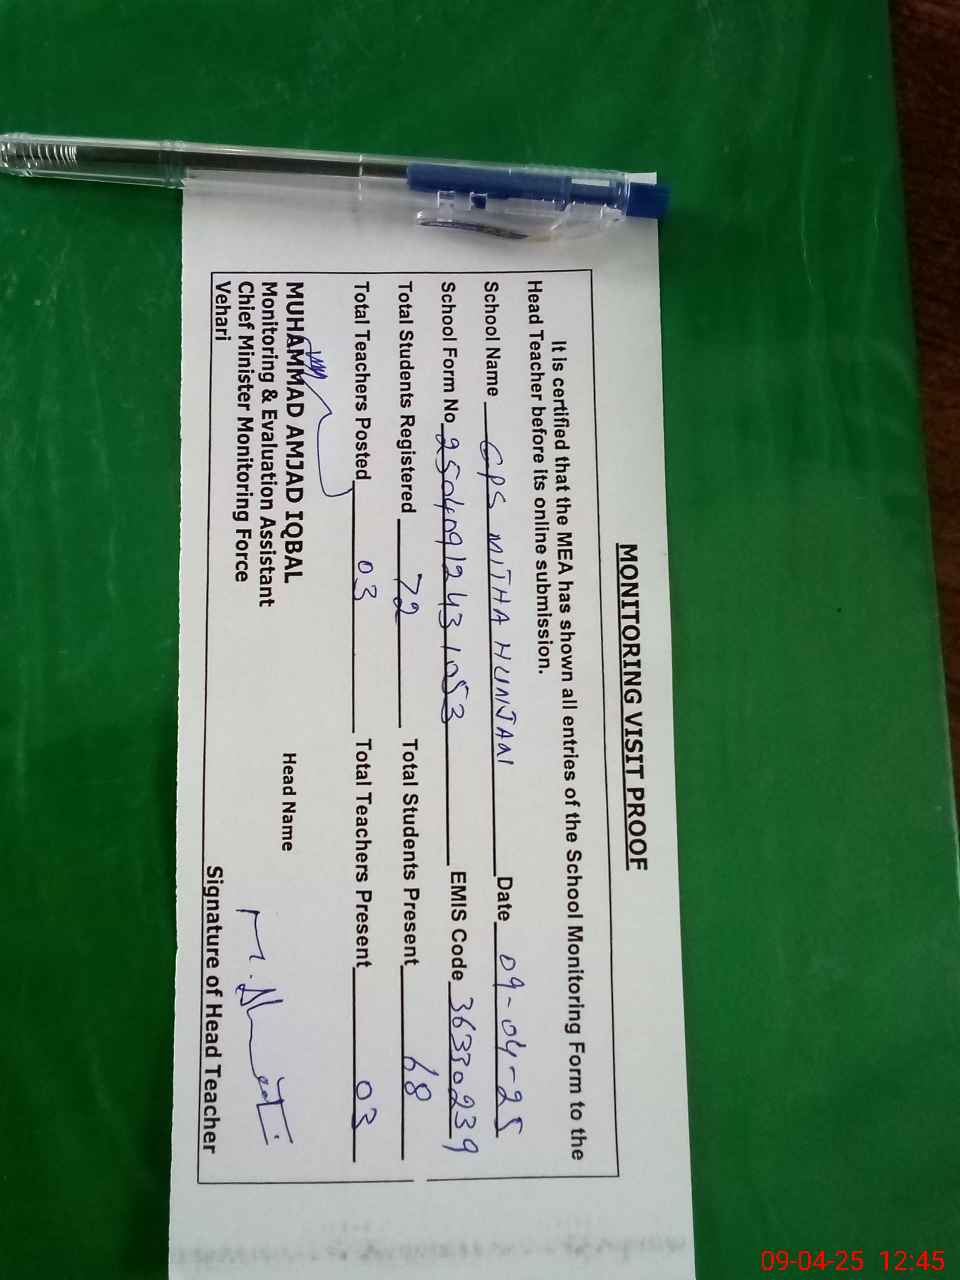 MONITORING VISIT PROOF
It is certified that the MEA has shown all entries of the School Monitoring Form to the
Head Teacher before its online submission.
School Name GPS MITHA HUNJAN Date 09-04-25
School Form No 25040912431053 EMIS Code 36330239
Total Students Registered 72 Total Students Present 68
Total Teachers Posted 03 Total Teachers Present 03
MUHAMMAD AMJAD IQBAL
Monitoring & Evaluation Assistant
Chief Minister Monitoring Force
Vehari
Head Name
Signature of Head Teacher
09-04-25 12:45